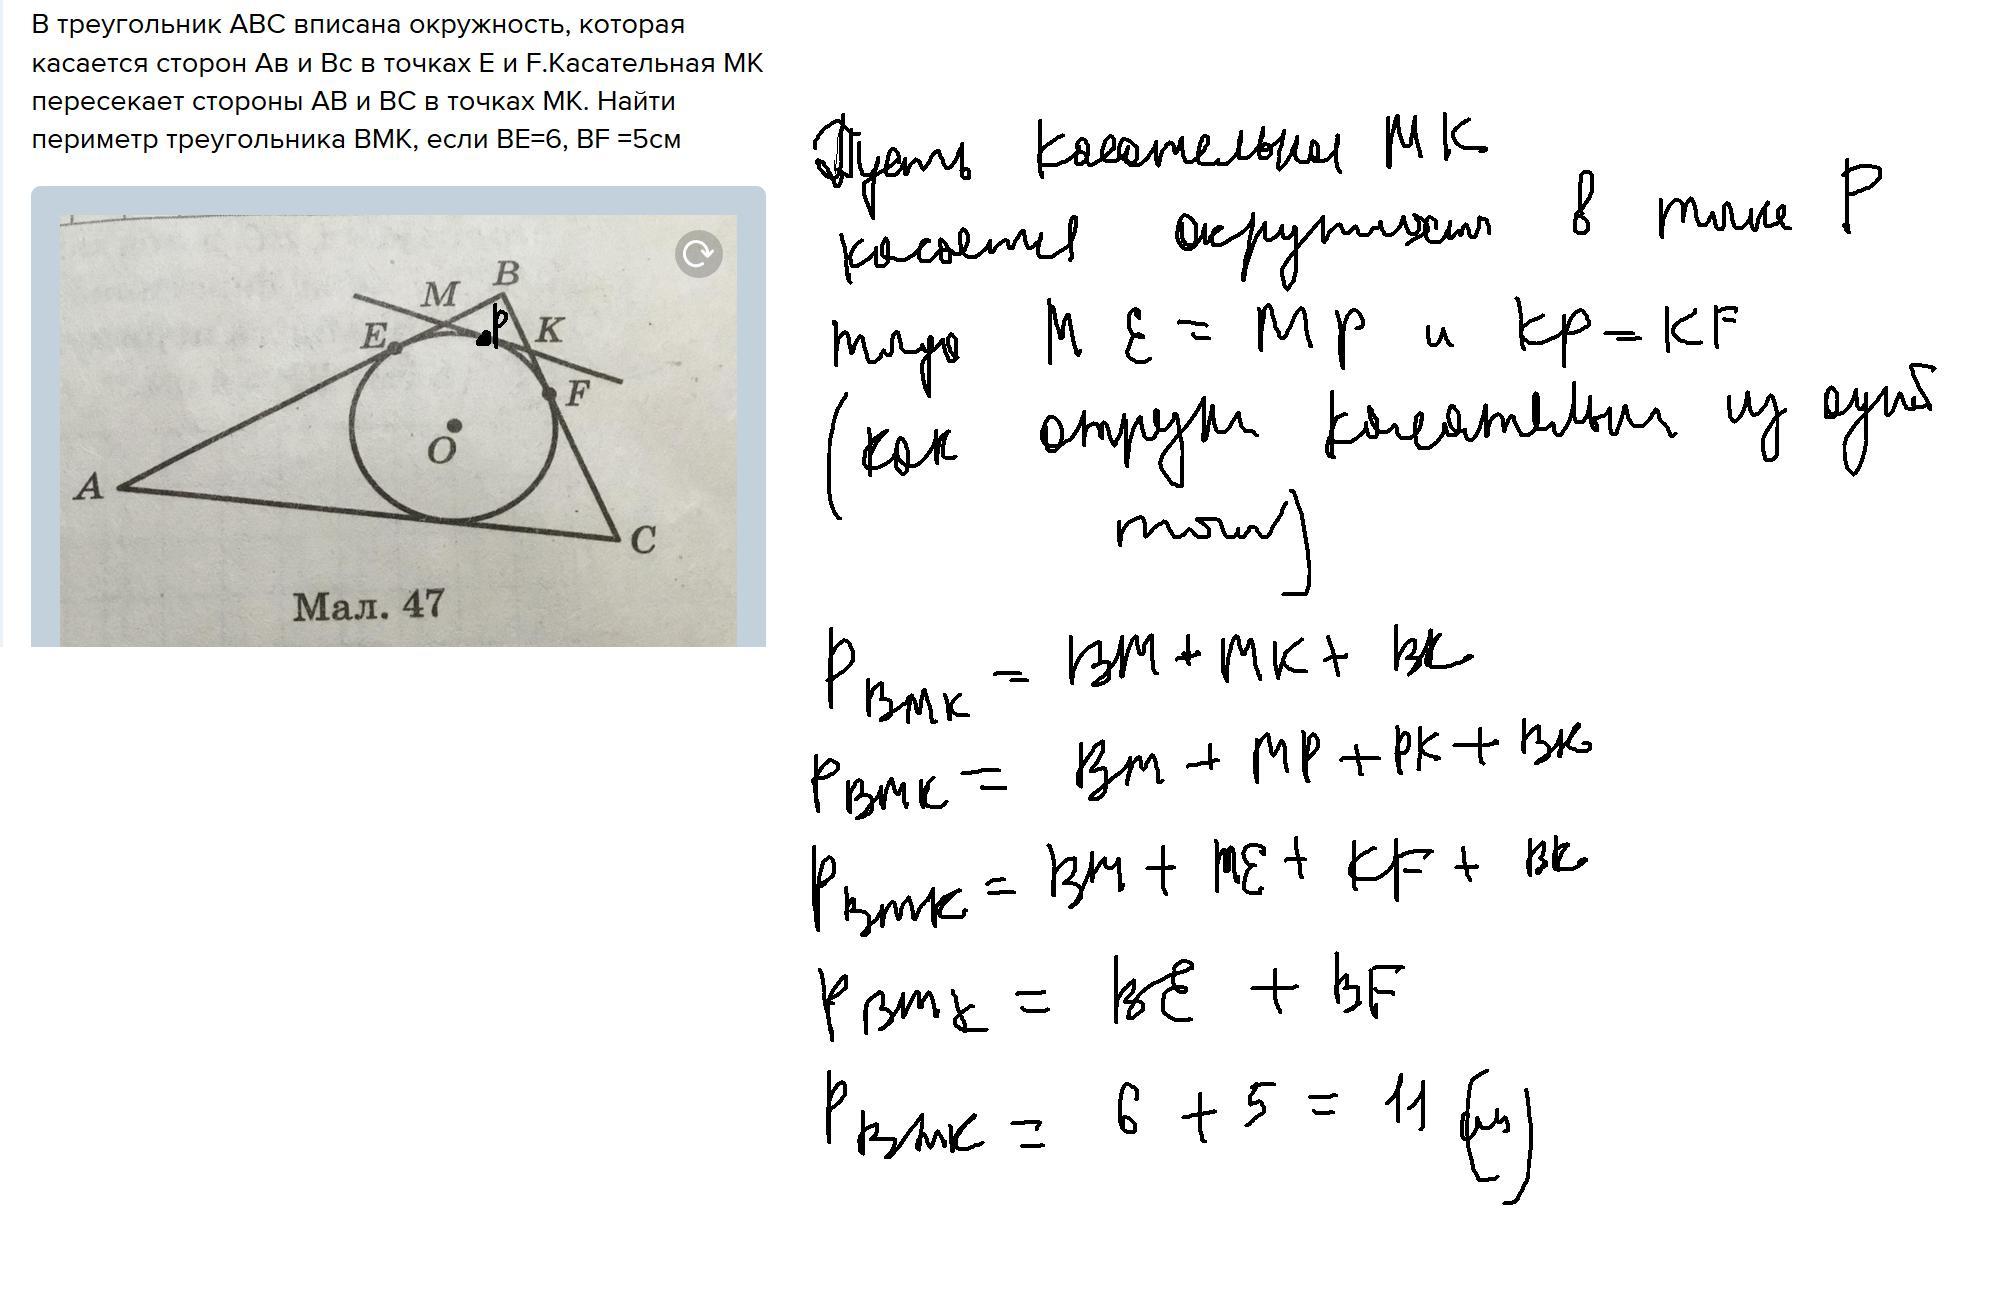 В треугольник ABC вписана окружность, которая
касается сторон Ав и Вс в точках Е и F.Касательная МК
пересекает стороны АВ и ВС в точках МК. Найти
периметр треугольника ВМК, если ВЕ=6, BF =5см
B
M
P
E
K
F
O
A
C
Мал. 47
Пусть касательная МК
касается окружности в точке Р
тогда МЕ = МР и КР = KF
(как отрезки касательных из одной
точки)
P ВМК = ВМ + МК + ВК
P ВМК = ВМ + МР + РК + ВК
P ВМК = ВМ + МЕ + KF + ВК
P ВМК = ВЕ + BF
P ВМК = 6 + 5 = 11 (см)